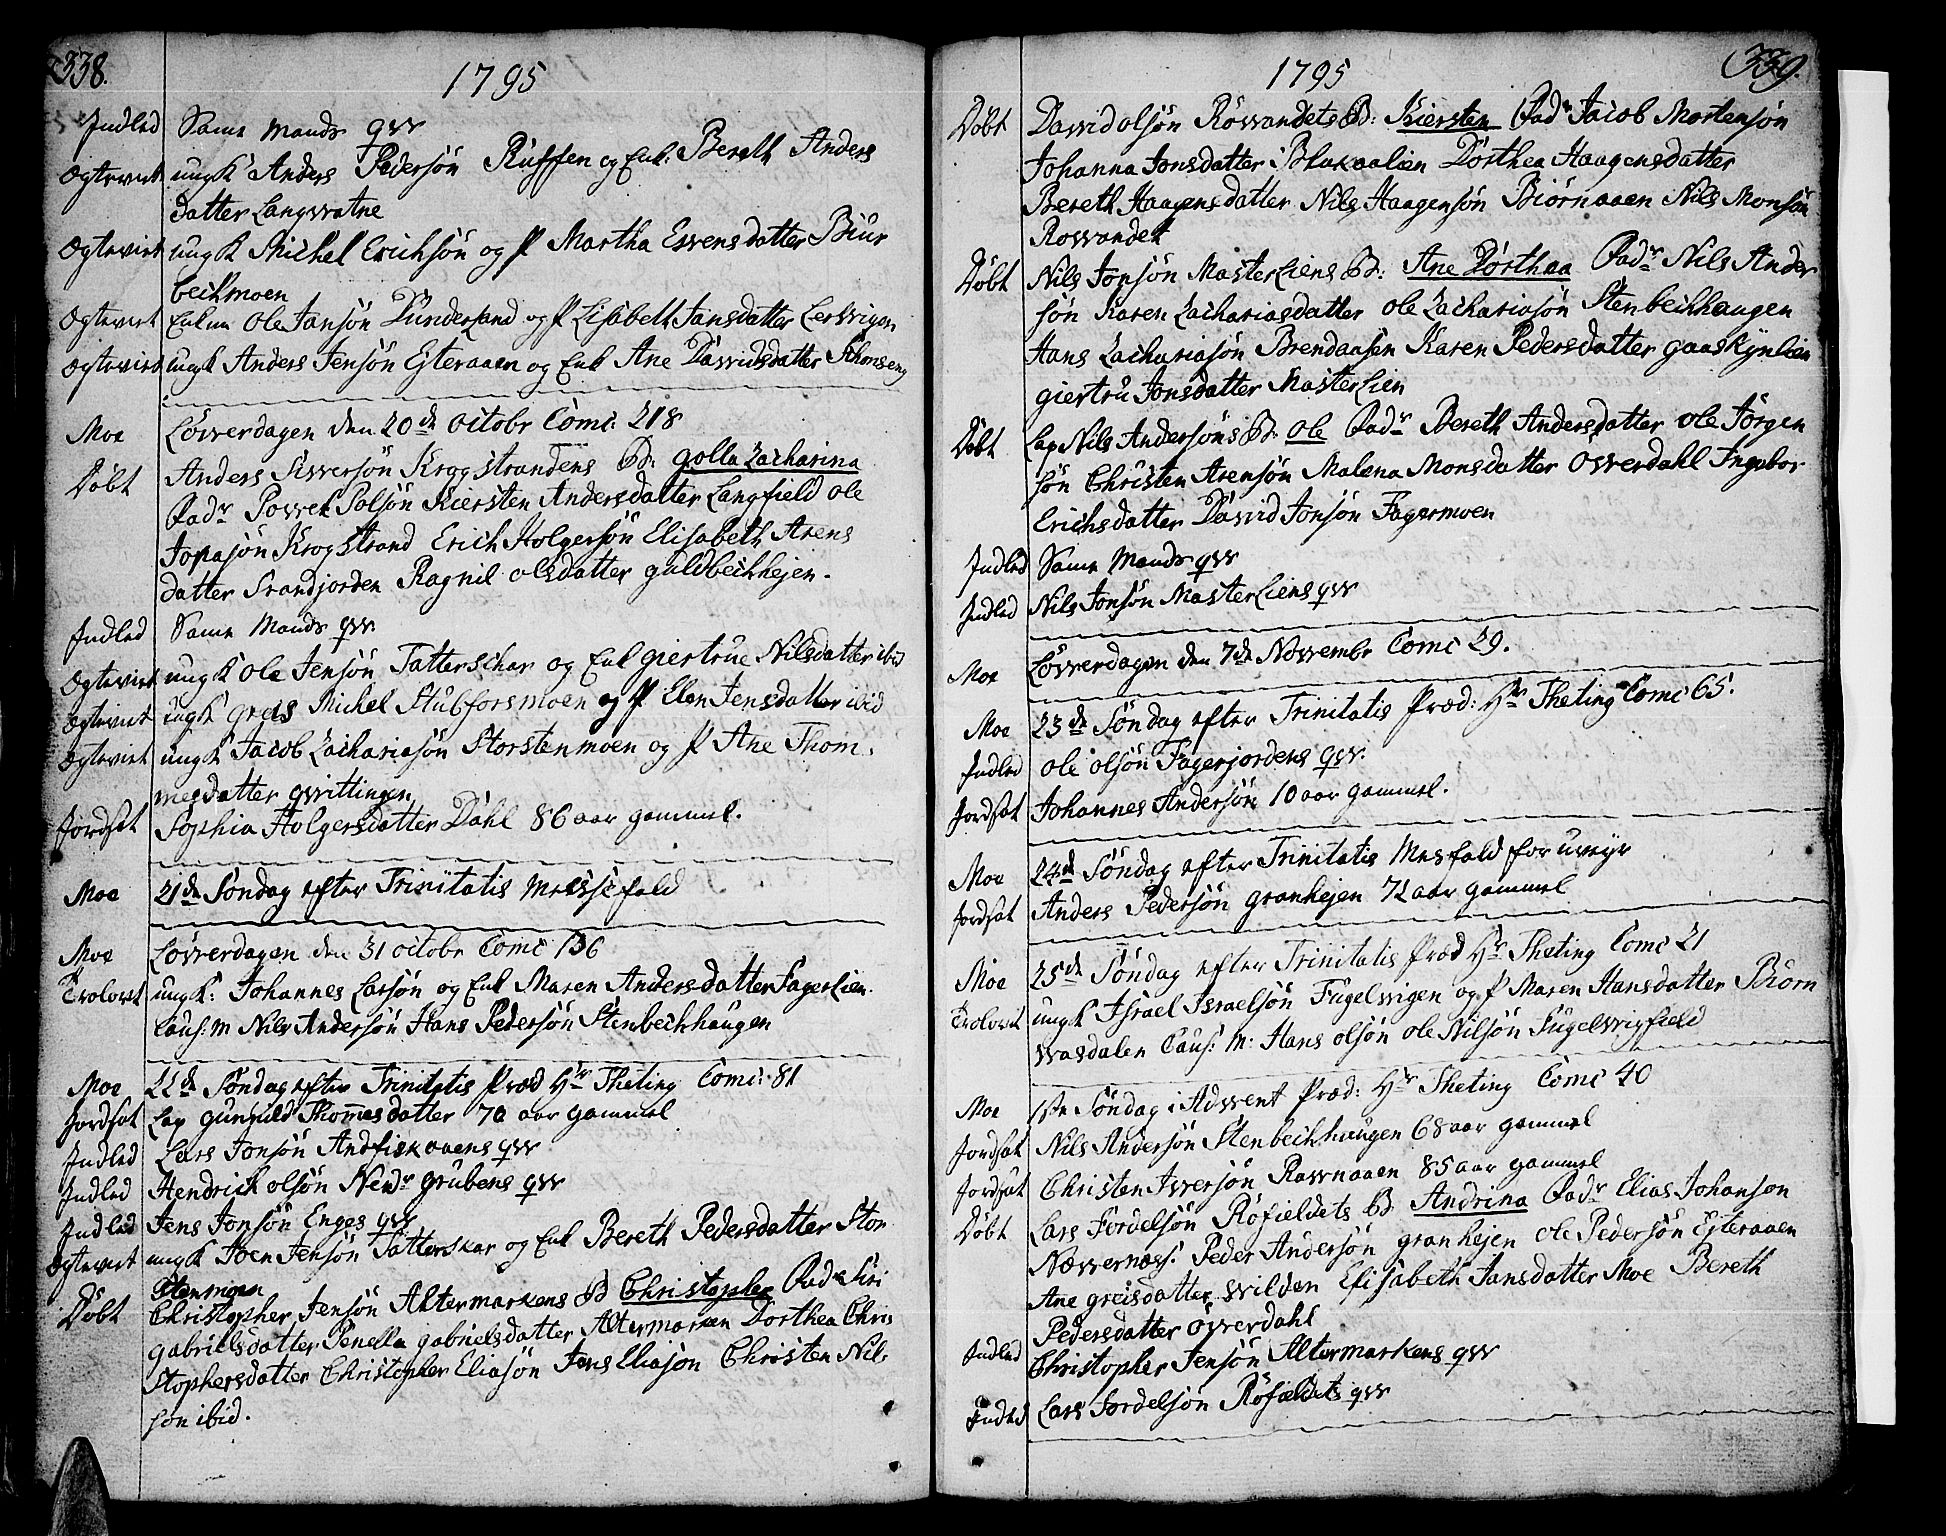 338.
1795
Indled Same Mands qvv
Ægteviet ungK Anders Pedersøn Ruffen og Enk: Bereth Anders
datter Langvatne
Ægteviet ungK Michel Erichsøn og P Martha Evensdatter Biur
bechmoen
Ægteviet Enkm Ole Jansøn Dunderland og P Lisabeth Jansdatter Lervigen
Ægteviet ungK Anders Jensøn Ejteraaen og Enk Ane Davidsdatter Schonseng
Moe Løverdagen den 20de octobr Comc: 218
Døbt Anders Siversøn Krogstrandens B: Golla Zacharina
Fadr Povel Polsøn Kiersten Andersdatter Langfield Ole
Jopasøn Krogstrand Erich Holgersøn Elisabeth Arens
datter Srandjorden Ragnil olsdatter guldbechhejen.
Indled Same Mands qvv.
Ægteviet ungK Ole Jensøn Tatterschar og Enk giertrue Nilsdatter ibid
Ægteviet ungK greis Michel Stubforsmoen og P Elen Jensdatter ibid
Ægteviet ungK Jacob Zachariasøn Storstenmoen og P Ane Thom,
mesdatter qvittingen
Jordsat Sophia Holgersdatter Dahl 86 aar gammel.
Moe 21de Søndag efter Trinitatis Messefald
Moe Løverdagen den 31 octobr Comc 136
Trolovet ungK: Johannes Larsøn og Enk Maren Andersdatter Fagerlien.
Caus: M Nils Andersøn Hans Pedersøn Stenbechhaugen
Moe 22de Søndag efter Trinitatis Præd Hr Theting Comc: 81
Jordsat Lap gunguld Thomesdatter 70 aar gammel
Indled Lars Jonsøn Andfiskaaens qvv
Indled Hendrich olsøn Nedr grubens qvv
Indled Jens Jonsøn Enges qvv
Ægteviet ungK Joen Jensøn Tatterskar og Enk Bereth Pedersdatter Stor
Stenmoen
Døbt Christopher Jensøn Altermarkens B Christopher Fadr Siri
gabrielsdatter Penella gabrielsdatter Altermarken Dorthea Chri,
Stophersdatter Christopher Eliasøn Jens Eliasøn Christen Nil,
søn ibid.
339.
1795
Døbt David olsøn Røsvandets B: Kiersten Fadr Jacob Mortensøn
Johanna Jonsdatter i Blakaalien Dorthea Haagensdatter
Bereth Haagensdatter Nils Haagensøn Biørnaaen Nils Monsøn
Rosvandet
Døbt Nils Jonsøn Masterliens B: Ane Dorthaa Fadr Nils Ander
søn Karen Zachariasdatter Ole Zachariasøn Stenbechhaugen
Hans Zachariasøn Brendaasen Karen Pedersdatter gaaskynlien
giertru Jonsdatter Masterlien
Døbt Lap Nils Andersøns B: Ole Fadr Bereth Andersdatter Ole Jørgen
søn Christen Arensøn Malena Monsdatter Overdahl Ingebor
Erichsdatter David Jonsøn Fagermoen
Indled Same Mands qvv
Indled Nils Jonsøn Masterliens qvv
Moe Løverdagen den 7de Novembr Comc 29.
Moe 23de Søndag efter Trinitatis Præd: Hr Theting Comc 65.
Indled Ole olsøn Fagerjordens qvv.
Jordsat Johannes Andersøn 10 aar gammel.
Moe 24de Søndag efter Trinitatis Mesfald for uveyr
Jordsat Anders Pedersøn granhejen 72 aar gammel
Moe 25de Søndag efter Trinitatis Præd Hr Theting Comc 21
Trolovet ungK Israel Israelsøn Fugelvigen og P Maren Hansdatter Biørn
vasdalen Caus: M: Hans olsøn Ole Nilsøn Fugelvigfield
Moe 1ste Søndag i Advent Præd: Hr Theting Comc 40
Jordsat Nils Andersøn Stenbechhaugen 68 aar gammel
Jordsat Christen Iversøn Ravnaaen 85 aar gammel
Døbt Lars Fordelsøn Røfieldets B Andrina Fadr Elias Johansøn
Nævernæs: Peder Andersøn granhejen Ole Pedersøn Ejteraaen
Ane greisdatter Svilden Elisabeth Jansdatter Moe Bereth
Pedersdatter Øverdahl
Indled Christopher Jensøn Altermarkens qvv
Indled Lars Fordelsøn Røfieldets qvv